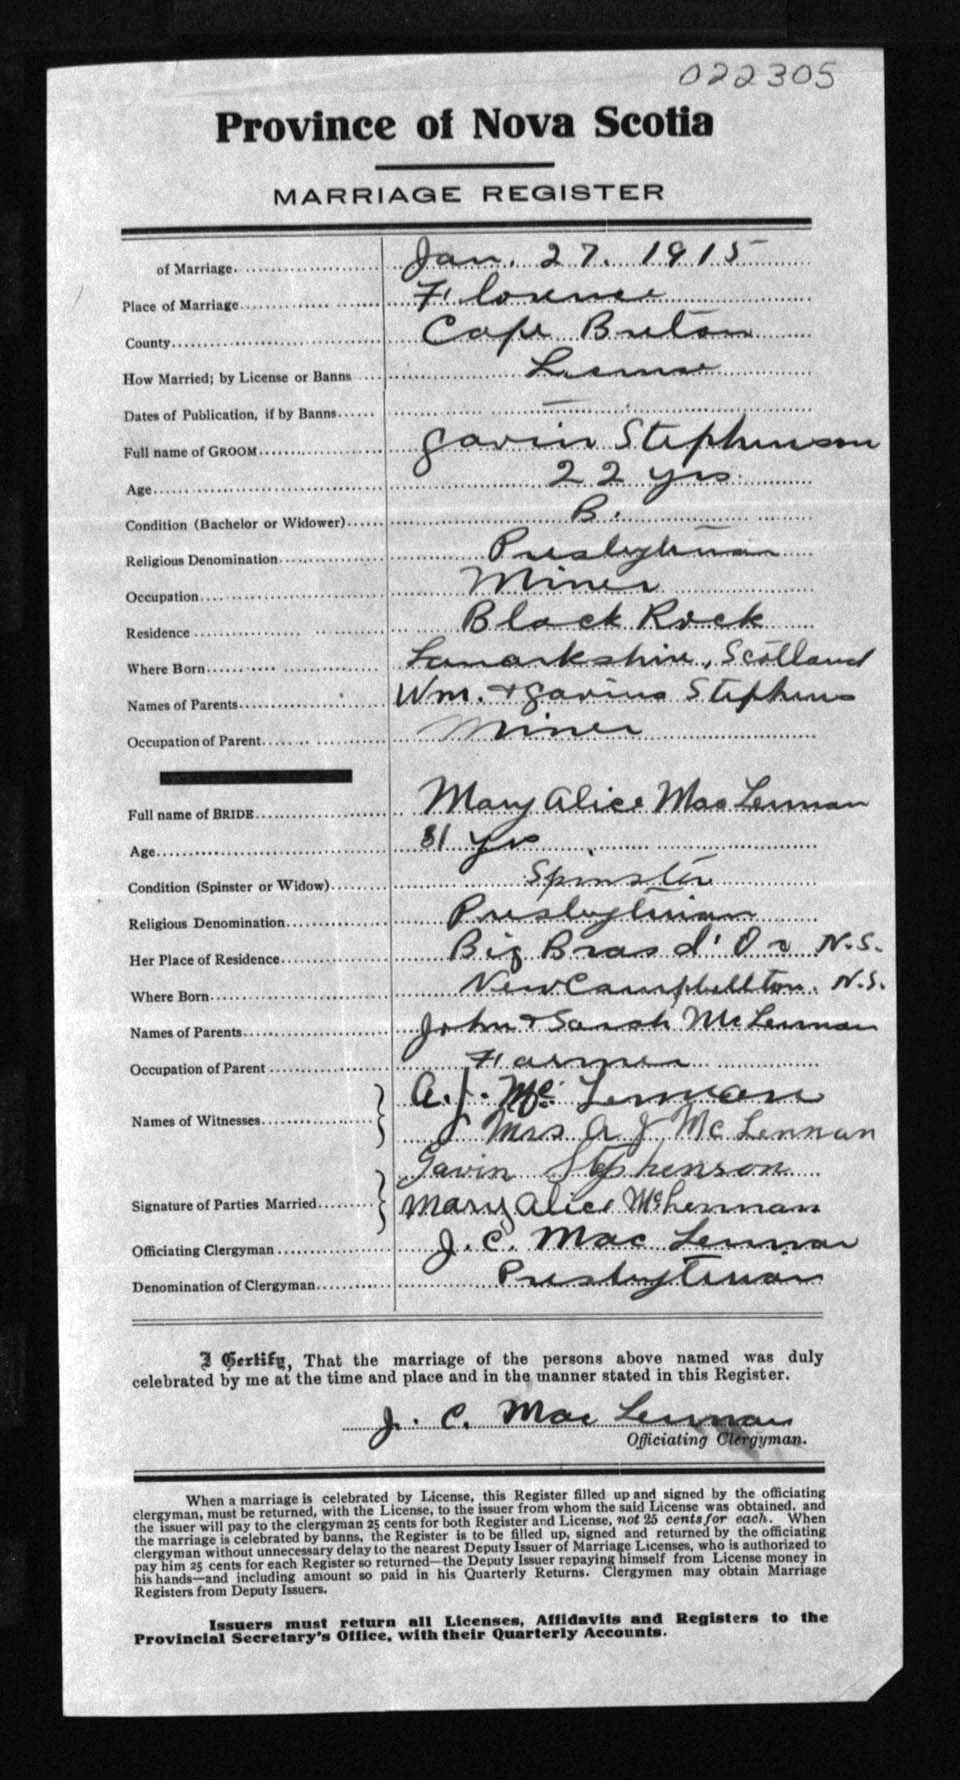 022305
Province of Nova Scotia
MARRIAGE REGISTER
of Marriage Jan. 27. 1915
Place of Marriage Florence
County Cape Breton
How Married; by License or Banns License
Dates of Publication, if by Banns —
Full name of GROOM Gavin Stephenson
Age 22 yrs
Condition (Bachelor or Widower) B.
Religious Denomination Presbyterian
Occupation Miner
Residence Black Rock
Where Born Lanarkshire, Scotland
Names of Parents Wm. & Gavina Stephens
Occupation of Parent Miner
Full name of BRIDE Mary Alice MacLennan
Age 31 yrs
Condition (Spinster or Widow) Spinster
Religious Denomination Presbyterian
Her Place of Residence Big Bras d'Or N.S.
Where Born New Campbellton. N.S.
Names of Parents John & Sarah McLennan
Occupation of Parent Farmer
A. J. Mc Lennan
Names of Witnesses
Mrs A J McLennan
Gavin Stephenson
Signature of Parties Married Mary Alice McLennan
Officiating Clergyman J. C. MacLennan
Denomination of Clergyman Presbyterian
I Certify, That the marriage of the persons above named was duly
celebrated by me at the time and place and in the manner stated in this Register.
J. C. MacLennan
Officiating Clergyman.
When a marriage is celebrated by License, this Register filled up and signed by the officiating
clergyman, must be returned, with the License, to the issuer from whom the said License was obtained, and
the issuer will pay to the clergyman 25 cents for both Register and License, not 25 cents for each. When
the marriage is celebrated by banns, the Register is to be filled up, signed and returned by the officiating
clergyman without unnecessary delay to the nearest Deputy Issuer of Marriage Licenses, who is authorized to
pay him 25 cents for each Register so returned—the Deputy Issuer repaying himself from License money in
his hands—and including amount so paid in his Quarterly Returns. Clergymen may obtain Marriage
Registers from Deputy Issuers.
Issuers must return all Licenses, Affidavits and Registers to the
Provincial Secretary's Office, with their Quarterly Accounts.